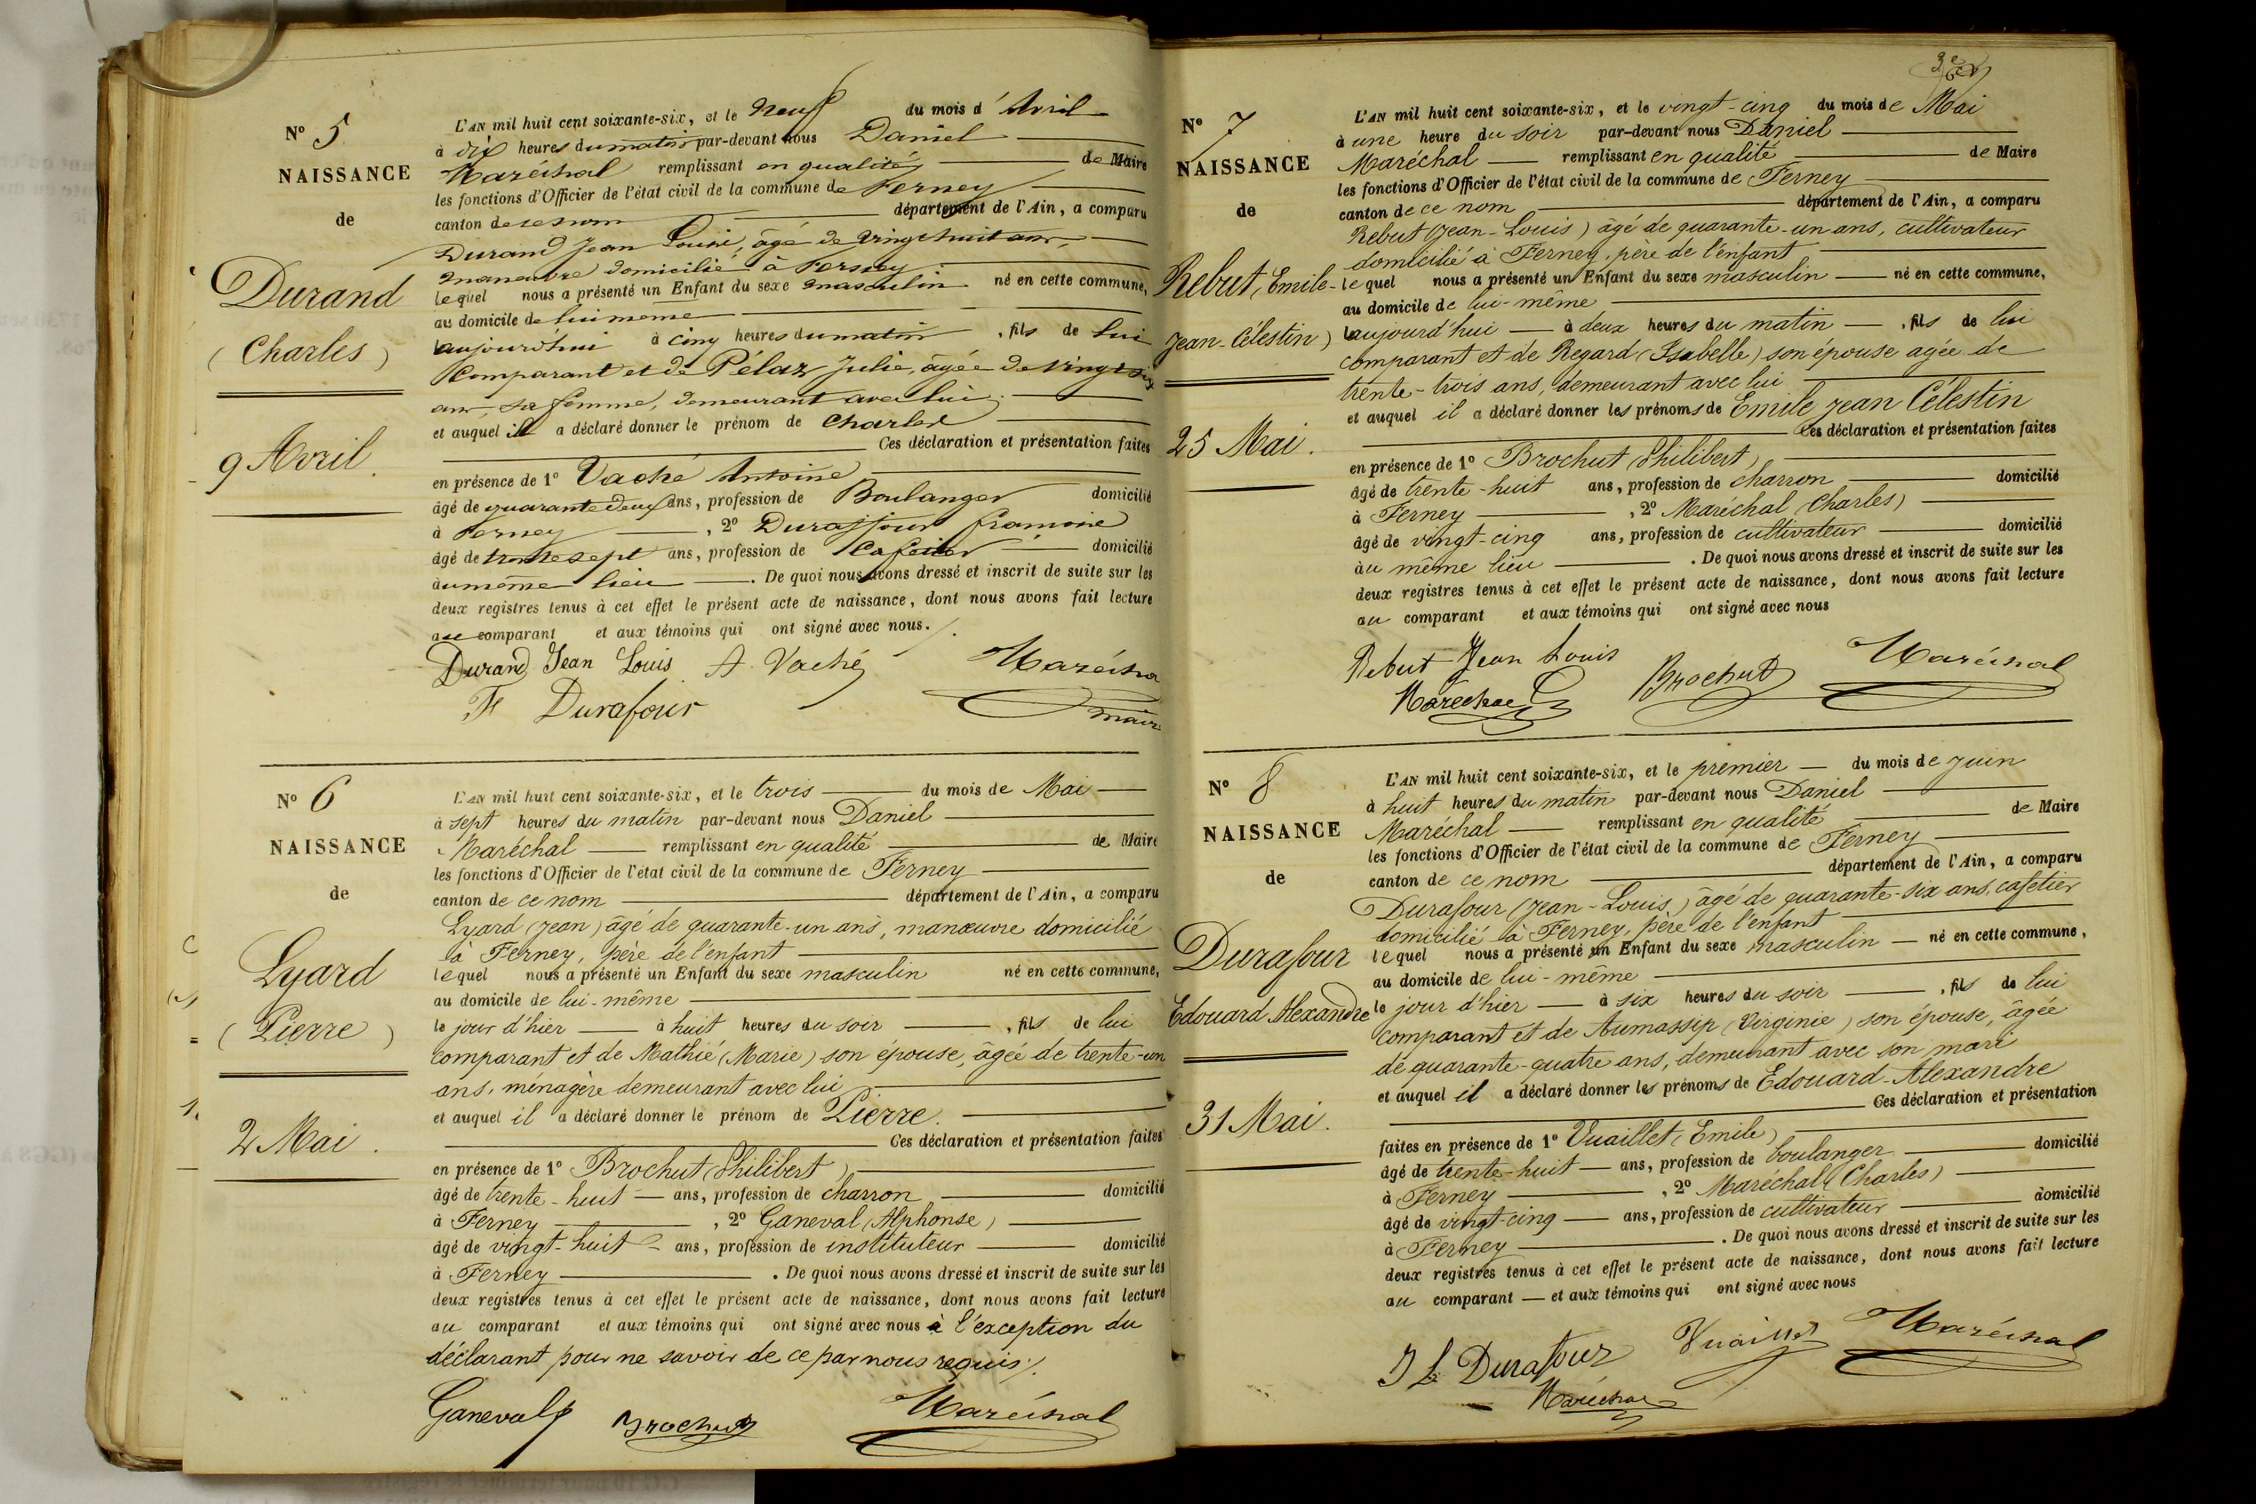 Nº 5
NAISSANCE
de
Durand
(Charles)
9 Avril.
L'AN mil huit cent soixante-six, et le neuf du mois d'Avril
à dix heures du matin par-devant nous Daniel
Maréchal remplissant en qualité de Maire
les fonctions d'Officier de l'état civil de la commune de Ferney
canton de ce nom département de l'Ain, a comparu
Durand Jean Louis, âgé de vingt huit ans,
manœuvre domicilié à Ferney
lequel nous a présenté un Enfant du sexe masculin né en cette commune,
au domicile de lui même
aujourd'hui à cinq heures du matin, fils de lui
Comparant et de Pélaz Julie, âgée de vingt six
ans, sa femme, demeurant avec lui.
et auquel il a déclaré donner le prénom de Charles
Ces déclaration et présentation faites
en présence de 1º Vaché Antoine
âgé de quarante deux ans, profession de Boulanger domicilié
à Ferney, 2º Duraffour
âgé de trente sept ans, profession de Cafetier domicilié
au même lieu. De quoi nous avons dressé et inscrit de suite sur les
deux registres tenus à cet effet le présent acte de naissance, dont nous avons fait lecture
au comparant et aux témoins qui ont signé avec nous.
Durand Jean Louis A Vaché Maréchal
Fs Durafour maire
Nº 6
NAISSANCE
de
Lyard
(Pierre)
2 Mai.
L'AN mil huit cent soixante-six, et le trois du mois de Mai
à sept heures du matin par-devant nous Daniel
Maréchal remplissant en qualité de Maire
les fonctions d'Officier de l'état civil de la commune de Ferney
canton de ce nom département de l'Ain, a comparu
Lyard (Jean) âgé de quarante-un ans, manœuvre domicilié
à Ferney, père de l'enfant
lequel nous a présenté un Enfant du sexe masculin né en cette commune,
au domicile de lui-même
le jour d'hier à huit heures du soir, fils de lui
comparant et de Mathié (Marie) son épouse, âgée de trente-un
ans, ménagère demeurant avec lui
et auquel il a déclaré donner le prénom de Pierre.
Ces déclaration et présentation faites
en présence de 1º Brochut (Philibert),
âgé de trente-huit ans, profession de charron domicilié
à Ferney, 2º Ganeval (Alphonse)
âgé de vingt-huit ans, profession de instituteur domicilié
à Ferney. De quoi nous avons dressé et inscrit de suite sur les
deux registres tenus à cet effet le présent acte de naissance, dont nous avons fait lecture
au comparant et aux témoins qui ont signé avec nous à l'exception du
déclarant pour ne savoir de ce par nous requis.
Ganeval Brochut Maréchal
Nº 7
NAISSANCE
de
Rebut (Emile-
Jean-Célestin)
25 Mai.
L'AN mil huit cent soixante-six, et le vingt-cinq du mois de Mai
à une heure du soir par-devant nous Daniel
Maréchal remplissant en qualité de Maire
les fonctions d'Officier de l'état civil de la commune de Ferney
canton de ce nom département de l'Ain, a comparu
Rebut (Jean-Louis) âgé de quarante-un ans, cultivateur
domicilié à Ferney, père de l'enfant
lequel nous a présenté un Enfant du sexe masculin né en cette commune,
au domicile de lui-même
aujourd'hui à deux heures du matin, fils de lui
comparant et de Regard (Isabelle) son épouse agée de
trente-trois ans, demeurant avec lui
et auquel il a déclaré donner les prénoms de Emile Jean Célestin
Ces déclaration et présentation faites
en présence de 1º Brochut (Philibert)
âgé de trente-huit ans, profession de charron domicilié
à Ferney, 2º Maréchal (Charles)
âgé de vingt-cinq ans, profession de cultivateur domicilié
au même lieu. De quoi nous avons dressé et inscrit de suite sur les
deux registres tenus à cet effet le présent acte de naissance, dont nous avons fait lecture
au comparant et aux témoins qui ont signé avec nous
Rebut Jean Louis Brochut Maréchal
Maréchal
Nº 8
NAISSANCE
de
Durafour
Edouard Alexandre
31 Mai.
L'AN mil huit cent soixante-six, et le premier du mois de Juin
à huit heures du matin par-devant nous Daniel
Maréchal remplissant en qualité de Maire
les fonctions d'Officier de l'état civil de la commune de Ferney
canton de ce nom département de l'Ain, a comparu
Durafour (Jean-Louis) âgé de quarante-six ans, cafetier
domicilié à Ferney, père de l'enfant
lequel nous a présenté un Enfant du sexe masculin né en cette commune,
au domicile de lui-même
le jour d'hier à six heures du soir, fils de lui
comparant et de Aumassip (Virginie) son épouse, âgée
de quarante-quatre ans, demeurant avec son mari
et auquel il a déclaré donner les prénoms de Edouard-Alexandre
Ces déclaration et présentation
faites en présence de 1º Vuaillet (Emile)
âgé de trente-huit ans, profession de boulanger domicilié
à Ferney, 2º Maréchal (Charles)
âgé de vingt-cinq ans, profession de cultivateur domicilié
à Ferney. De quoi nous avons dressé et inscrit de suite sur les
deux registres tenus à cet effet le présent acte de naissance, dont nous avons fait lecture
au comparant et aux témoins qui ont signé avec nous
J L Durafour Vuaillet Maréchal
Maréchal